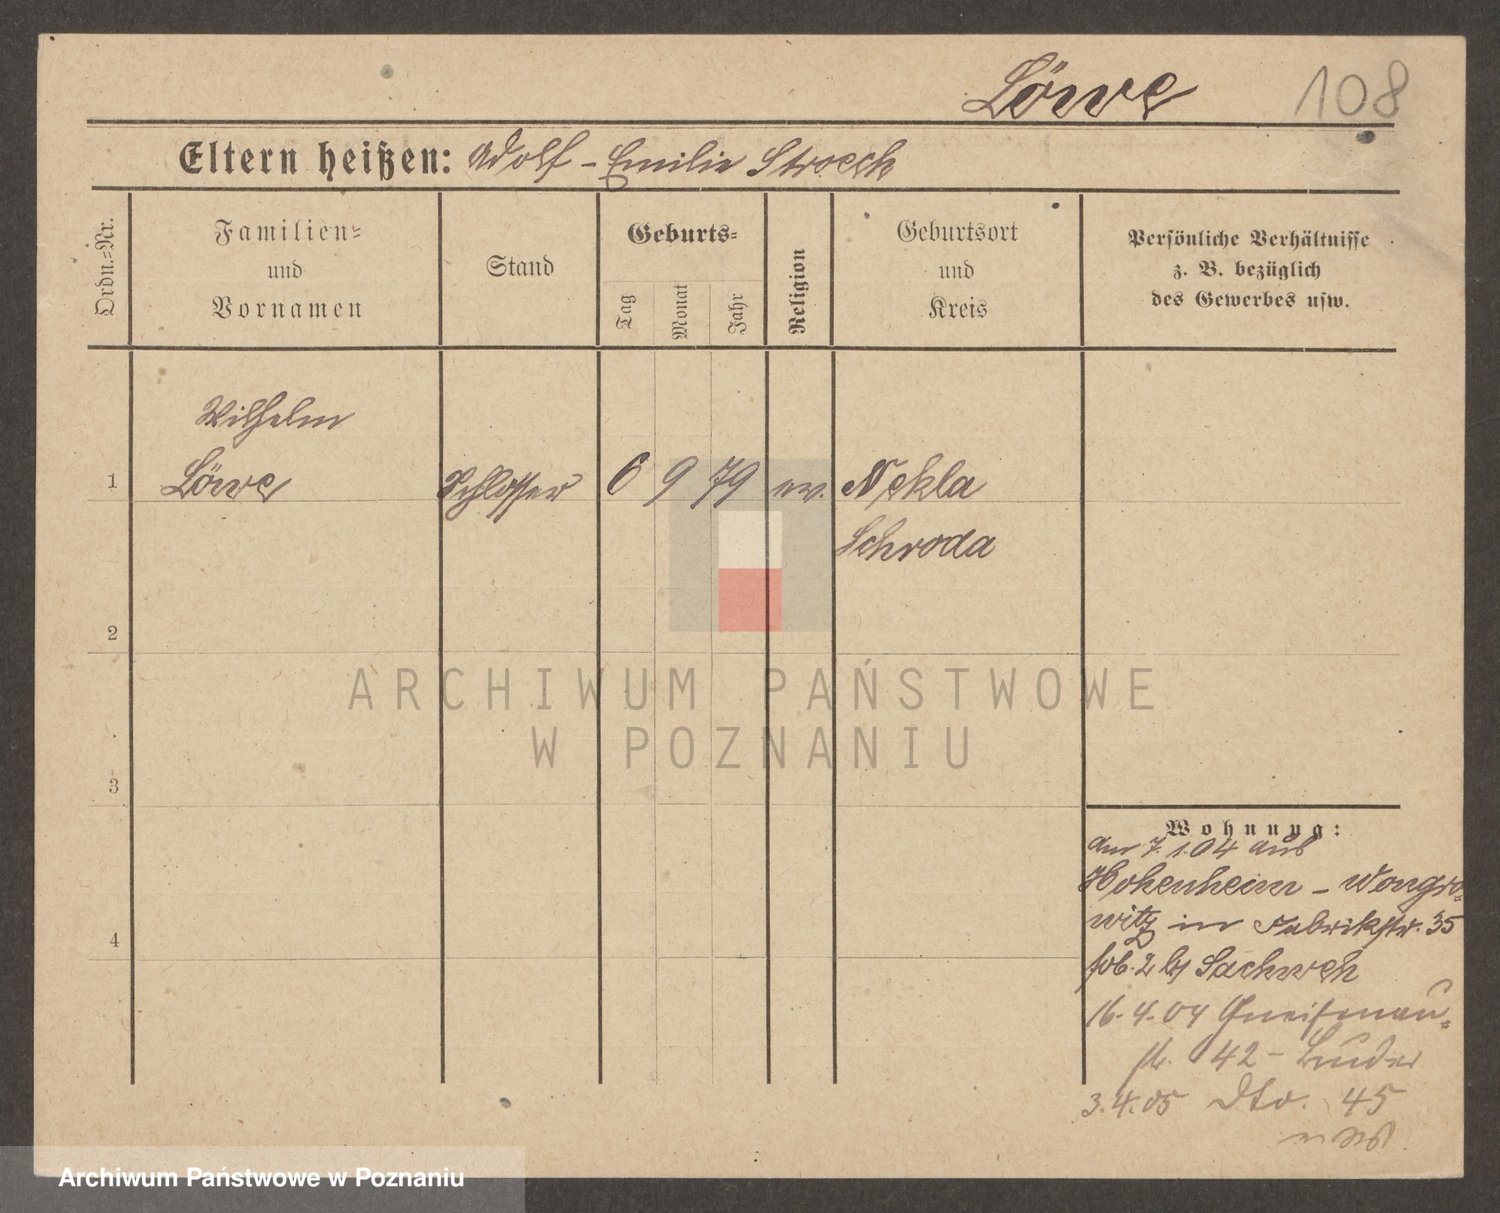 Löwe 108
Eltern heißen: Adolf - Emilie Stroech
Ordn.=Nr.
Familien=
und
Vornamen
Stand
Geburts=
Tag
Monat
Jahr
Religion
Geburtsort
und
Kreis
Persönliche Verhältnisse
z. B. bezüglich
des Gewerbes usw.
Wilhelm
1 Löwe Schlosser 6 9 79 ev. Nekla
Schroda
2
3
4
Wohnung:
am 7.1.04 aus
Hohenheim - Wongro=
witz in Fabrikstr. 35
2 bei Sachweh
16.4.04 Gneisenau=
str. 42 - Luder
3.4.05 Dto. 45
ARCHIWUM PAŃSTWOWE
W POZNANIU
Archiwum Państwowe w Poznaniu